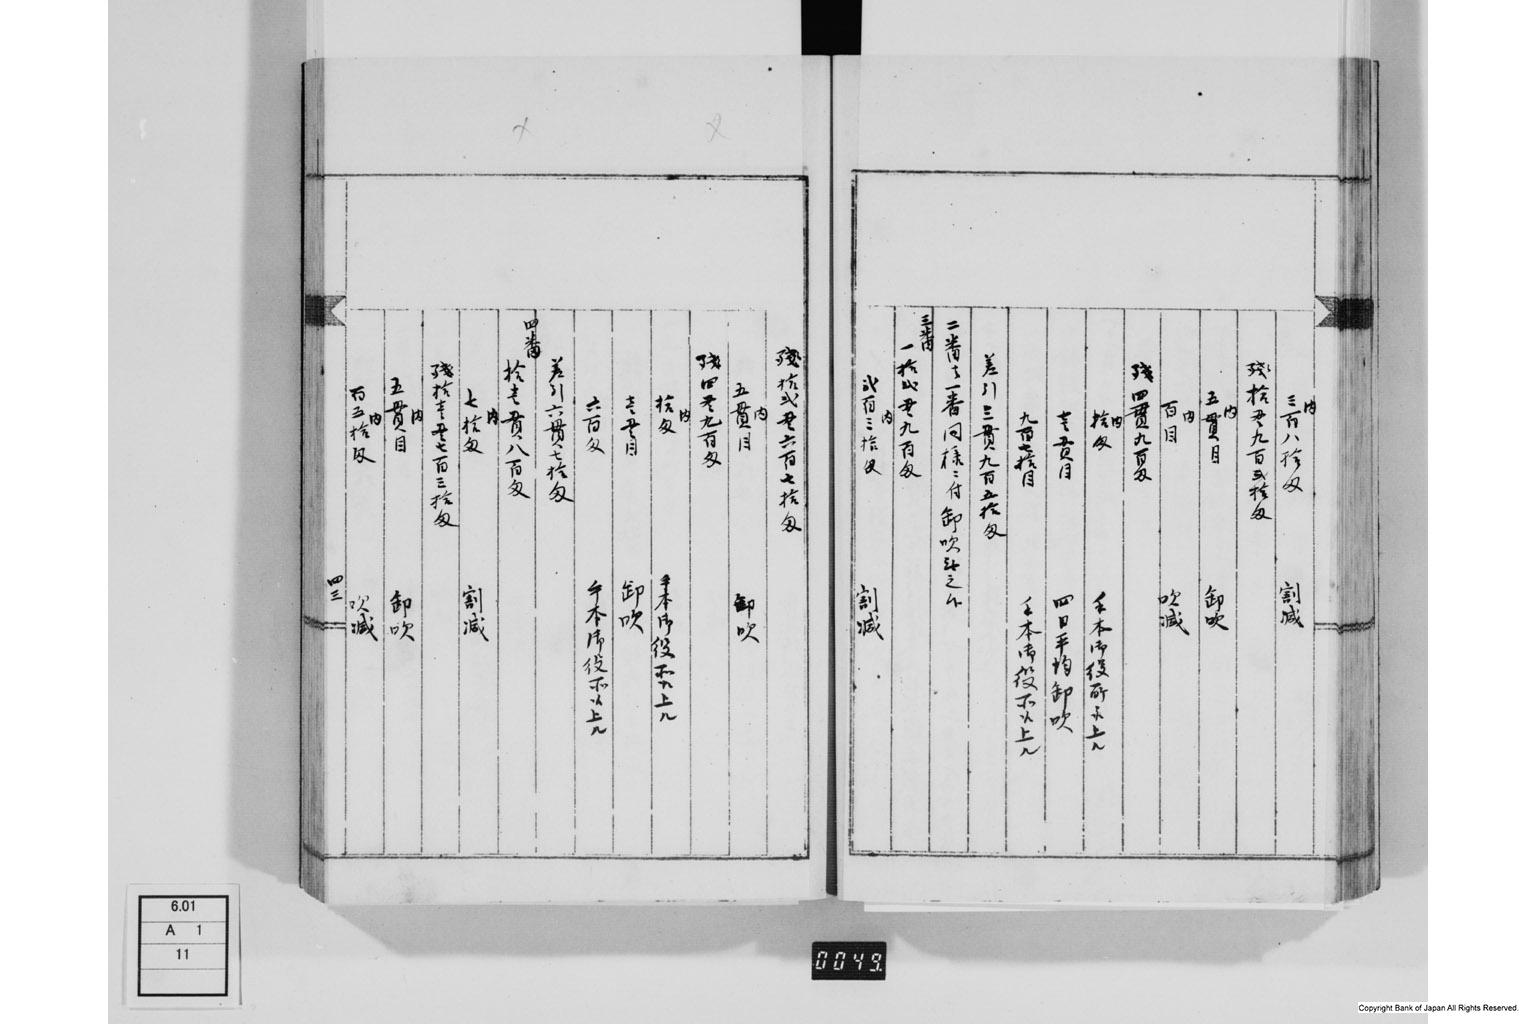 内
三百八拾匁 割减
残拾貫九百弐拾匁
内
五貫目 卸吹
内
百目 吹减
残四貫九百匁
内
拾匁 手本御役所へ上ル
壱貫目 四日平均卸吹
九百七拾目 手本御役所へ上ル
差引三貫九百五拾匁
二番ゟ一番同様ニ付卸吹
三番
一拾弐貫九百匁
内
弐百三拾匁 割减
残拾弐貫六百七拾匁
内
五貫目 卸吹
残四貫九百匁
内
拾匁 手本御役所へ上ル
壱貫目 卸吹
六百匁 手本御役所へ上ル
差引六貫七拾匁
四番
拾壱貫八百匁
内
七拾匁 割减
残拾壱貫七百三拾匁
内
五貫目 卸吹
内
百五拾匁 吹减
四三
6.01
A 1
11
0049
Copyright Bank of Japan All Rights Reserved.